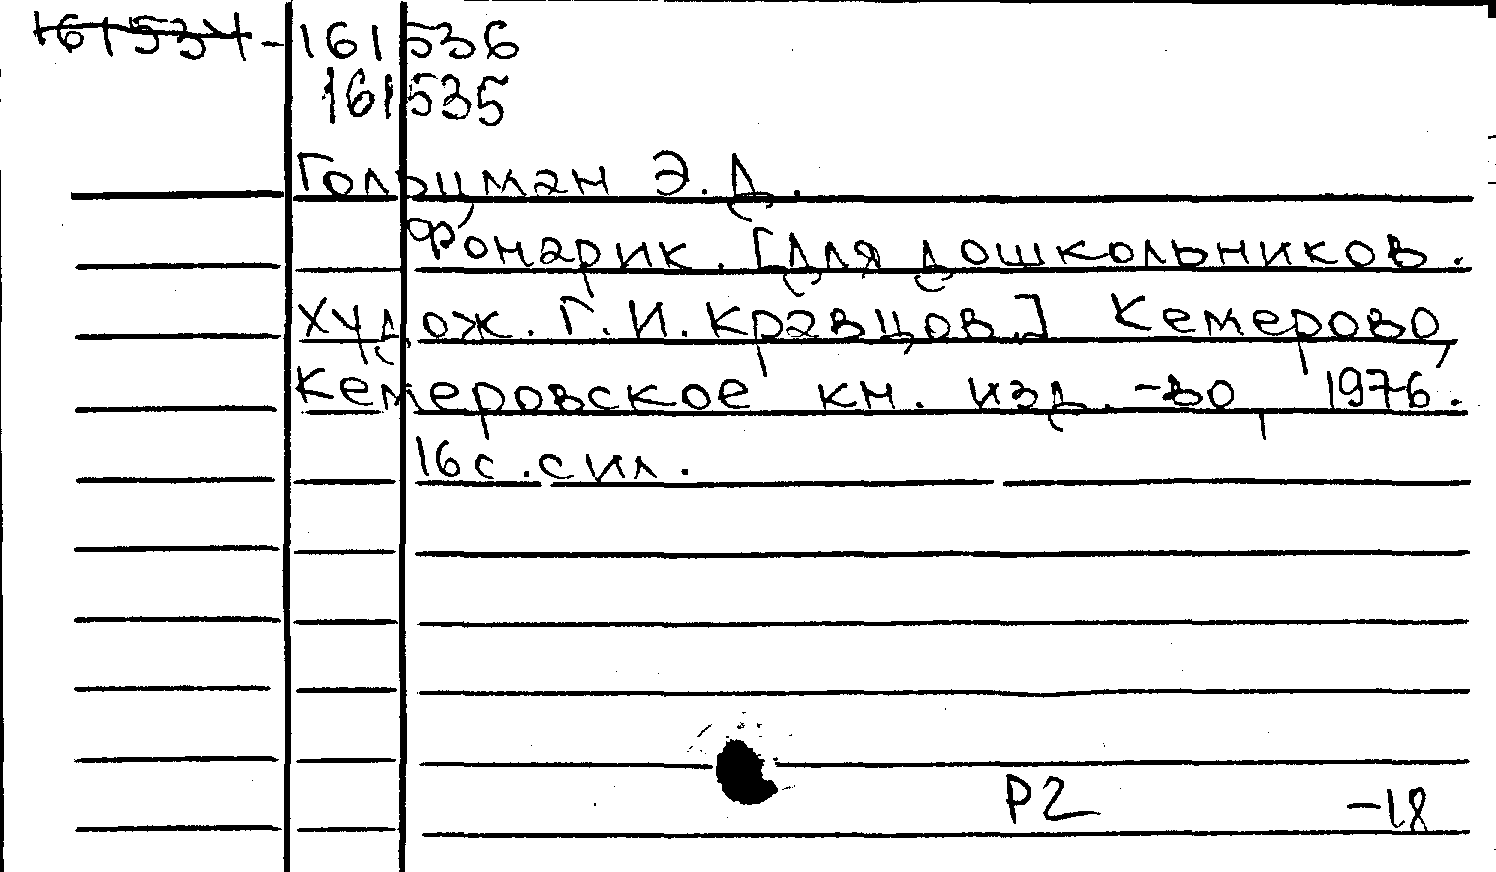 161534 - 161536
161535
Гольцман Э. Д.
Фонарик. [Для дошкольников.
Худож. Г. И. Кравцов.] Кемерово,
Кемеровское кн. изд.-во, 1976.
16 с. с ил.
Р2 -18